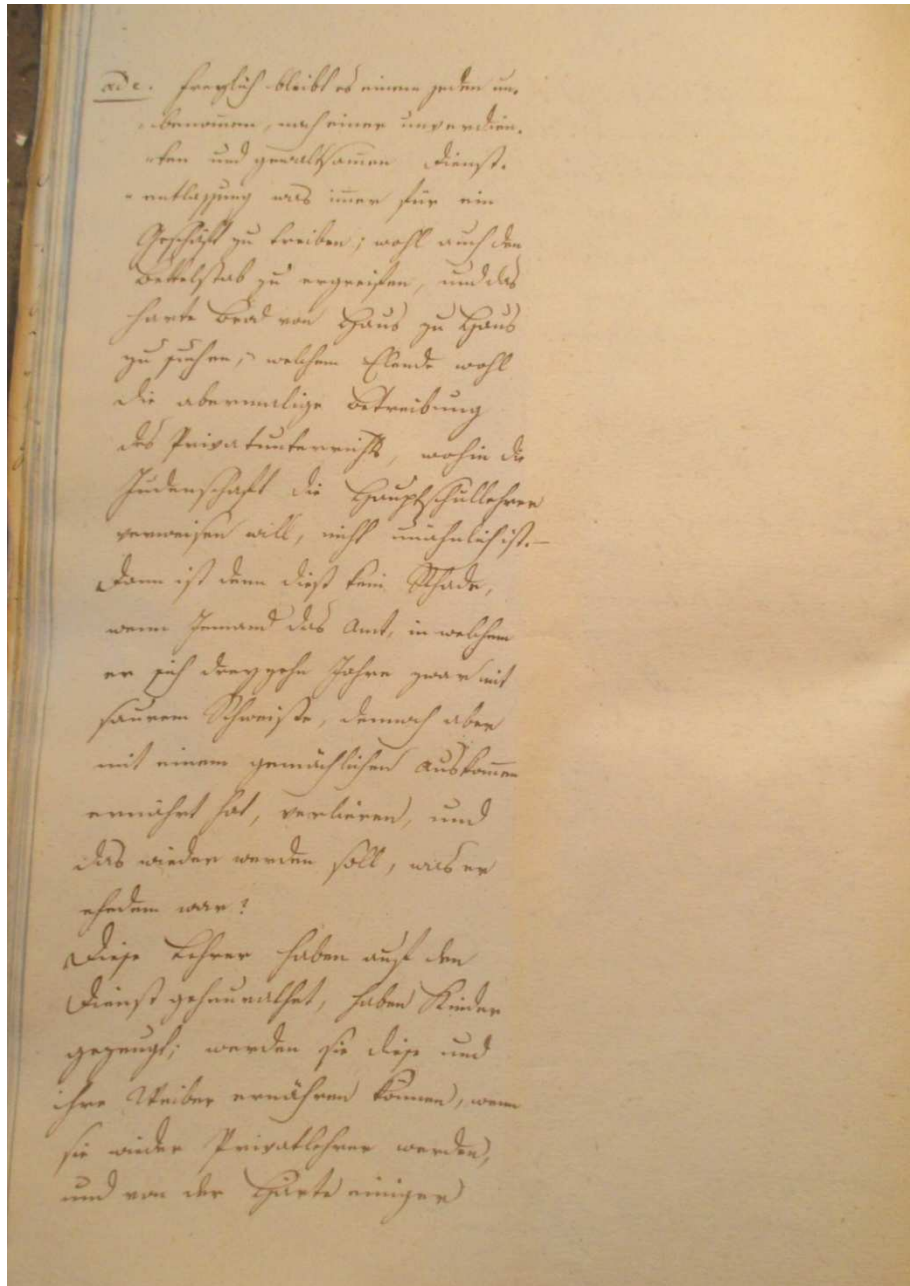 ad c. Freylich bleibt es einem jeden un-
benom̅en, nach einer unverdien-
ten und gewaltsamen Dienst-
entlassung was im̅er für ein
Geschäft zu treiben; wohl auch den
Bettelstab zu ergreifen, und das
harte Brod von Haus zu Haus
zu suchen, welchem Elende wohl
die abermalige Betreibung
des Privatunterrichts, wohin die
Judenschaft die Hauptschullehrer
verweisen will, nicht unähnlich ist. —
Dann ist denn dieß kein Schade,
wenn Jemand das Amt, in welchem
er sich dreyzehn Jahre zwar mit
saurem Schweiße, dennoch aber
mit einem gemächlichen Auskom̅en
ernährt hat, verlieren, und
das wieder werden soll, was er
ehedem war?
Diese Lehrer haben auf den
Dienst geheurathet, haben Kinder
gezeugt; werden sie diese und
ihre Weiber ernähren können, wenn
sie wieder Privatlehrer werden,
und von der Härte einiger